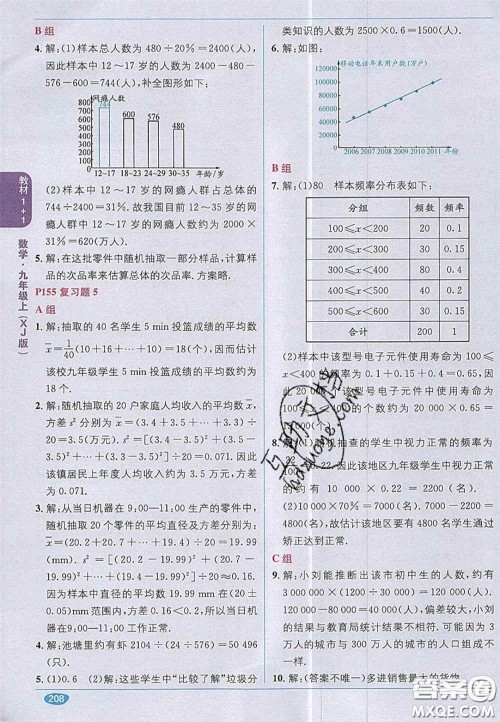 B组
4. 解：(1)样本总人数为 480÷20%=2400(人)，
因此样本中 12～17 岁的人数为 2400－480－
576－600=744(人)，补全图形如下：
网瘾人数
744
600
576
480
12~17 18~23 24~29 30~35 年龄/岁
(2)样本中 12～17 岁的网瘾人群占总体的
744÷2400=31%。故我国目前 12～35 岁的网
瘾人群中，12～17 岁的网瘾人数约为 2000×
31%=620(万人)
5. 解：在这批零件中随机抽取一部分样品，计算样
品的次品率来估算总体的次品率. 方案略.
P155 复习题 5
A组
1. 解：抽取的 40 名学生 5 min 投篮成绩的平均数
x̄=1/40(10+16+…+10)=18(个)，因而估计该
校九年级学生 5 min 投篮成绩的平均数约为
18 个.
2. 解：随机抽取的 20 户家庭人均收入的平均数
x̄=(3.4+3.5+…+3.3)÷20=70÷
20=3.5(万元). s²=[(3.4-3.5)²+(3.5-
3.5)²+…+(3.3-3.5)²]÷20=0.071，因此该
镇居民上年度人均收入约为 3.5 万元，方差为
0.071.
3. 解：从当日机器在 9:00—11:00 生产的零件中，
随机抽取 20 个零件的平均直径及方差分别为：
x̄=(20.2+20.7+…+19.5)÷20=19.99
(mm). s²=[(20.2-19.99)²+(20.7-
19.99)²+…+(19.5-19.99)²]÷20=
因为样本中直径的平均数 19.99 mm 在(20±
0.05)mm 范围内，方差也小于 0.3，所以当日机
器在 9:00—11:00 工作正常.
4. 解：池塘里约有 2104÷(24÷576)=50 496(条)
5. (1)0.6 (2)解：这些学生中“比较了解”垃圾分
类知识的人数为 2500×0.6=1500(人).
6. 解：如图：
移动电话年末用户数(万户)
120000
100000
80000
60000
40000
20000
0
2006 2007 2008 2009 2010 2011 年份
B组
7. 解：(1)80 样本频率分布表如下：
分组 频数 频率
100≤x<200 20 0.1
200≤x<300 30 0.15
300≤x<400 80 0.4
400≤x<500 40 0.2
500≤x<600 30 0.15
合计 200 1
(2)样本中该型号电子元件使用寿命为 100≤
x<400 的频率为 0.1+0.15+0.4=0.65，因此
该型号电子元件使用寿命在 100≤
x<400 的约有 20 000×0.65=
8. 解：(1)随机抽查的学生中视力正常的频率为
=0.22. 因此该地区九年级学生中视力正常的
约有 10 000×0.22=2200(名).
(2)(10000×70%－2200)=7000－2200=
4800(名)，故估计该地区要有 4800 名学生通过
矫正达到正常.
C组
9. 解：小刘能推断出该市初中生的人数，约有
3000000×5.4%=162 000(人)，偏差较大，小刘
的结论与教育局统计结果不相符，可能因为 3
万人的城市与 300 万人的城市的人口组成不同.
10. 解：(答案不唯一)多进销售量最大的货物.
教材1+1
数学·九年级上(XJ版)
208
答案圈
MXQE.COM